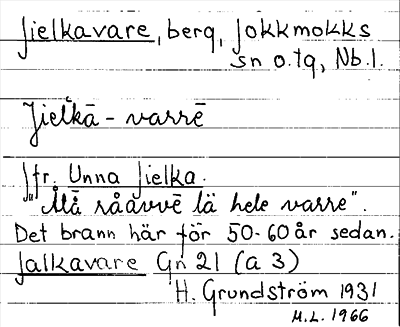 Jielkavare, berg, Jokkmokks
sn o. tg, Nb. l.
Jielkā - varrē
Jfr. Unna Jielka.
"Mā råavvē lä hele varre".
Det brann här för 50-60 år sedan.
Jalkavare Gn 21 (a 3)
H. Grundström 1931
M.L. 1966